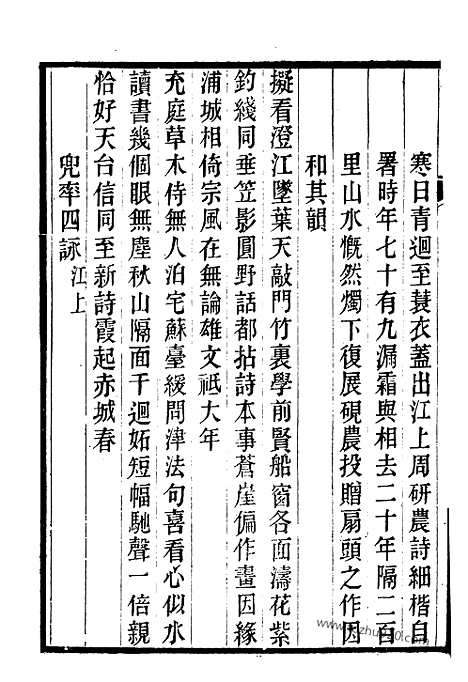 寒日青迴至蓑衣蓋出江上周研農詩細楷自
署時年七十有九漏霜與相去二十年隔二百
里山水慨然燭下復展硯農投贈扇頭之作因
和其韻
擬看澄江墜葉天敲門竹裏學前賢船窗各面濤花紫
釣綫同垂笠影圓野話都拈詩本事蒼崖偏作畫因緣
浦城相倚宗風在無論雄文祗大年
充庭草木侍無人泊宅蘇臺緩問津法句喜看心似水
讀書幾個眼無塵秋山隔面千迴妬短幅馳聲一倍親
恰好天台信同至新詩霞起赤城春
兜率四詠江上